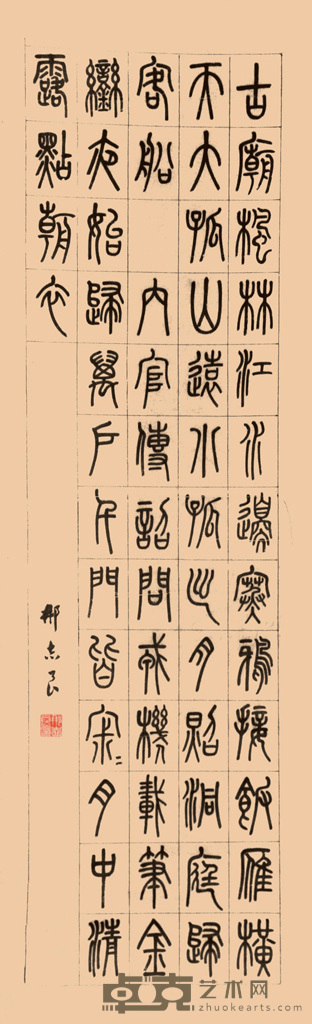 古廟楓林江水邊寒鴉接飯雁橫
天大孤山遠小孤出月照洞庭歸
客船 內官傳詔問戎機載筆金
鑾夜始歸萬戶千門皆寂〻月中清
露點朝衣
那志良
卓克艺术网
zhuokearts.com